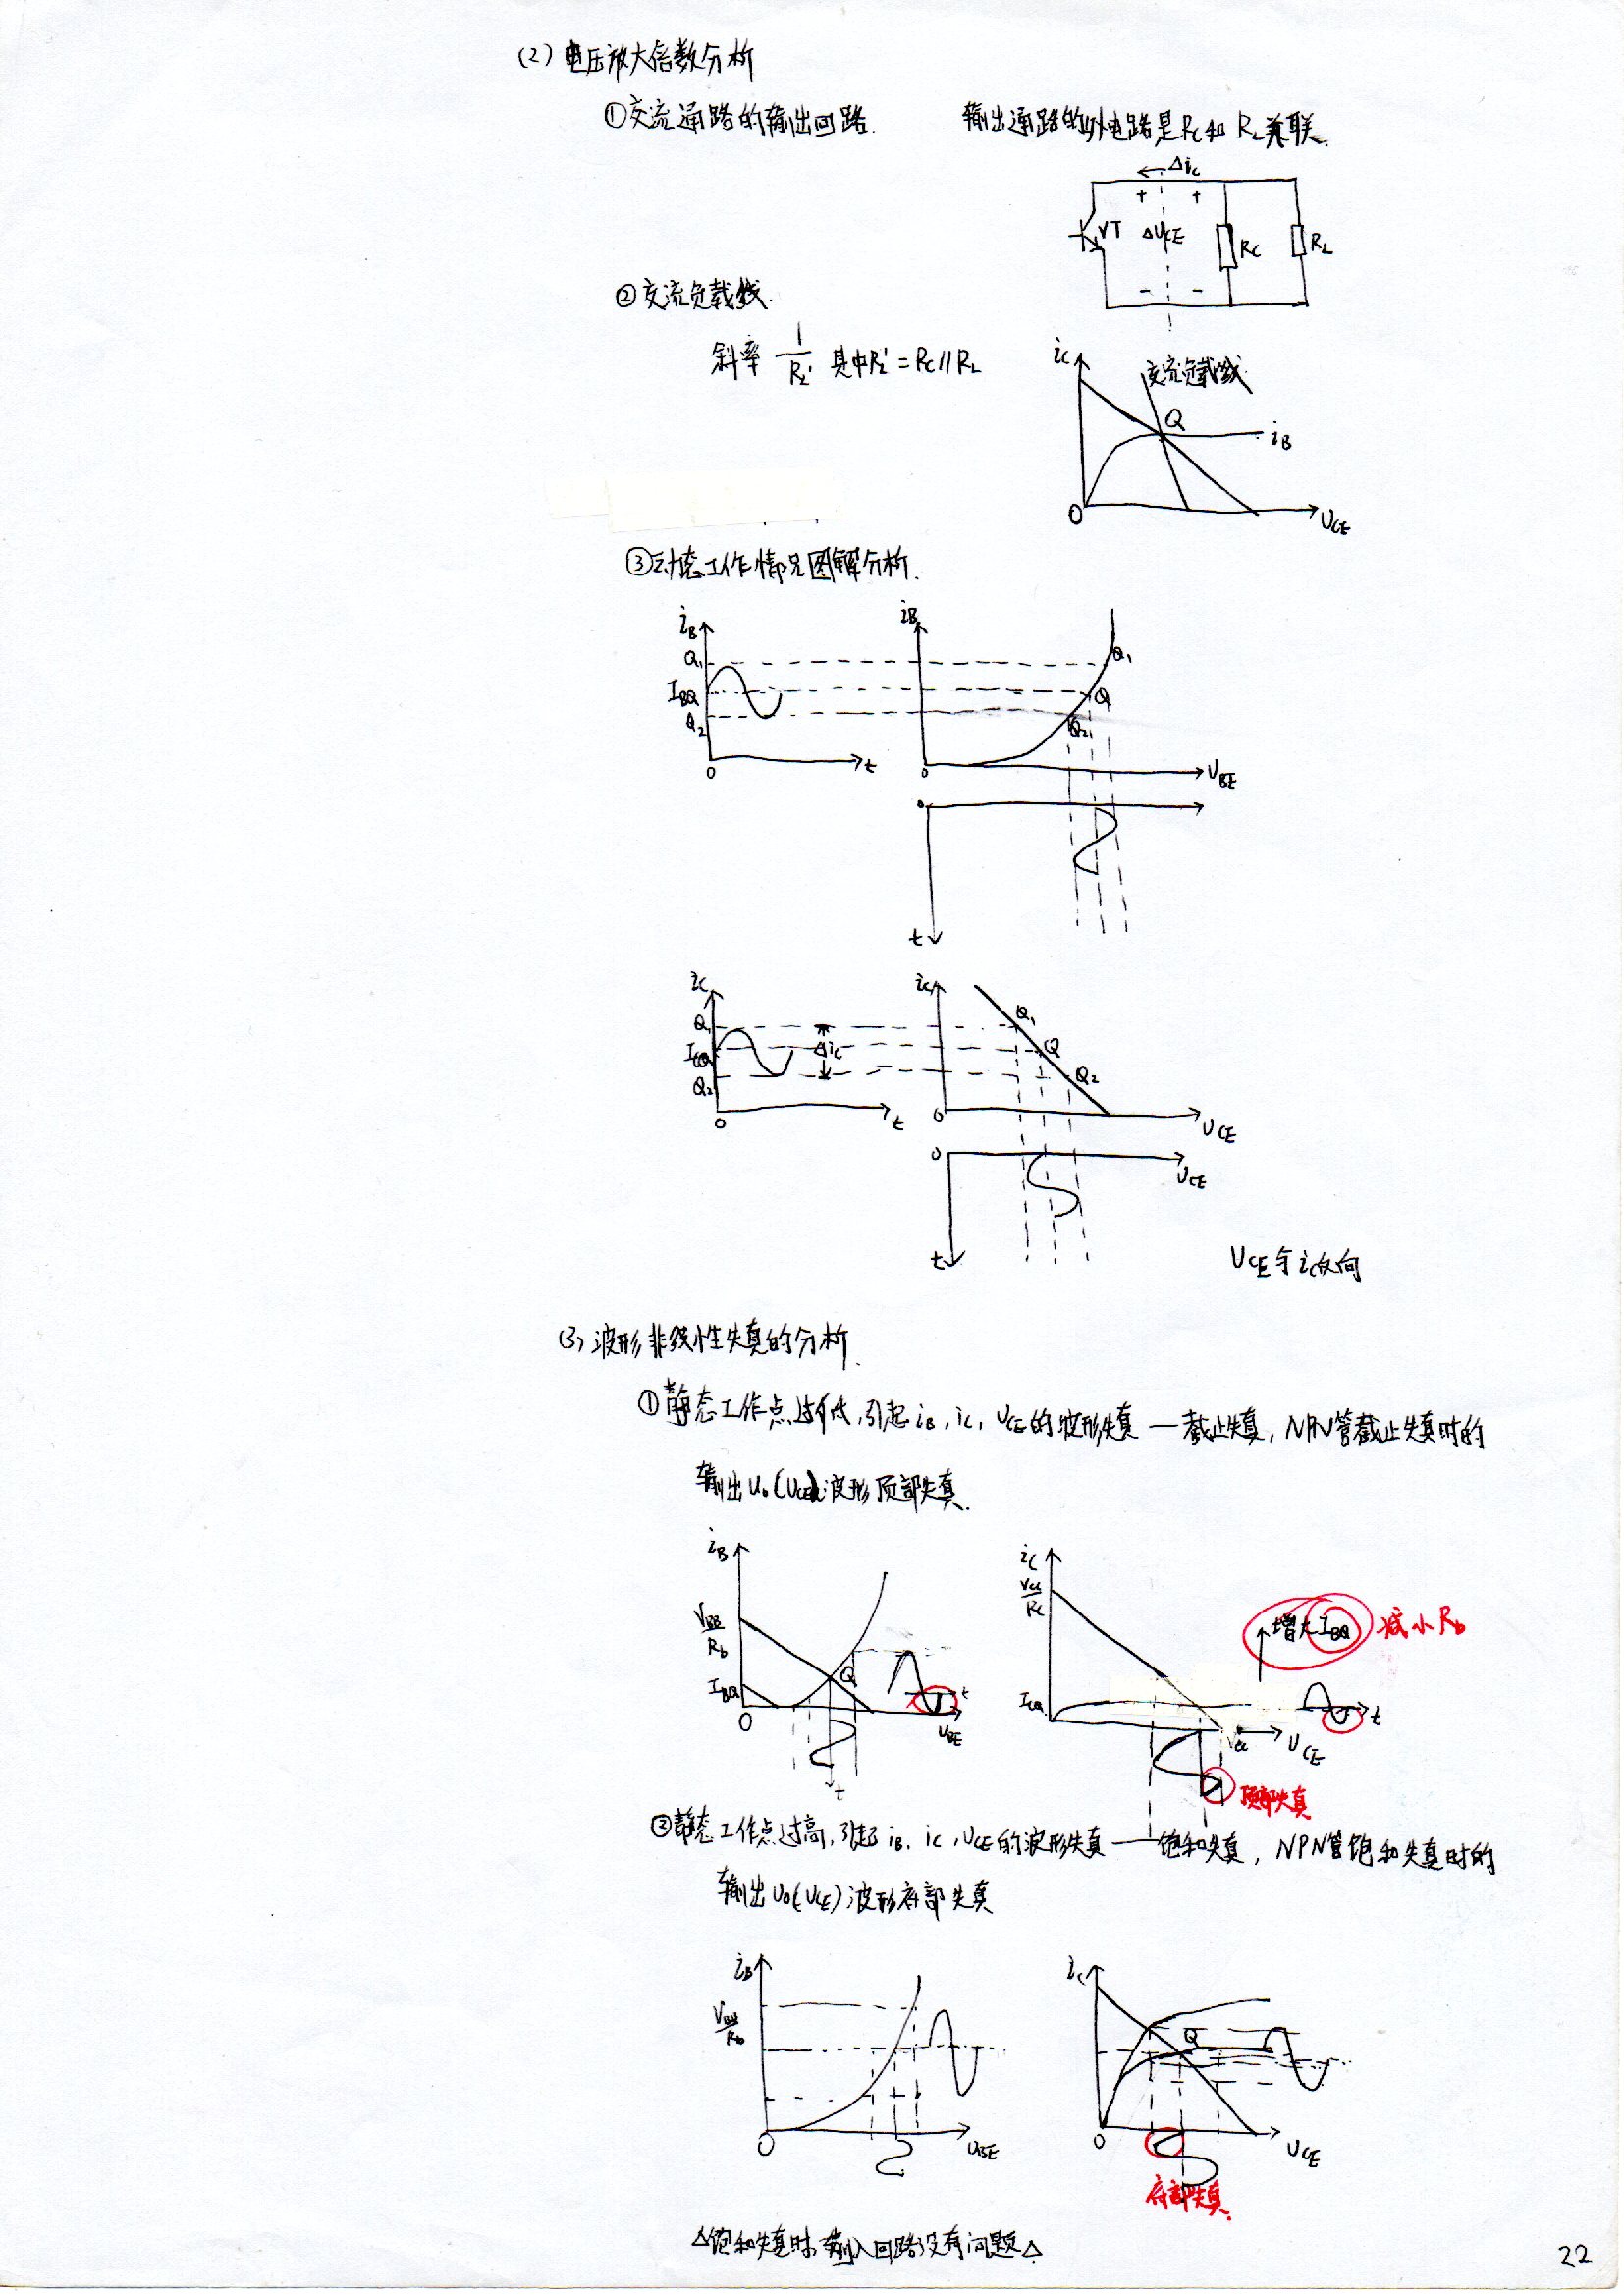 (2) 电压放大倍数分析
①交流通路的输出回路. 输出通路的外电路是Rc和RL并联.
←Δic
+ +
VT ΔUCE Rc RL
- -
②交流负载线.
斜率 -1/RL' 其中RL'=Rc//RL
ic 交流负载线
Q
iB
0 UCE
③动态工作情况图解分析.
iB iB
Q1 Q1
IBQ Q
Q2 Q2
0 t 0 UBE
0
t
ic ic
Q1 Q1
ICQ Δic Q
Q2 Q2
0 t 0 UCE
0 UCE
t UCE与ic反向
(3) 波形非线性失真的分析.
①静态工作点过低,引起iB,ic,UCE的波形失真—截止失真,NPN管截止失真时的
输出uo(UCE)波形顶部失真.
iB ic
VBB/Rb Vcc/Rc 增大IBQ 减小Rb
Q
IBQ t ICQ t
0 UBE Vcc UCE
t 顶部失真
②静态工作点过高,引起iB,ic,UCE的波形失真——饱和失真,NPN管饱和失真时的
输出uo(UCE)波形底部失真
iB ic
VBB/Rb Q
0 UBE 0 UCE
底部失真.
△饱和失真时,输入回路没有问题△
22